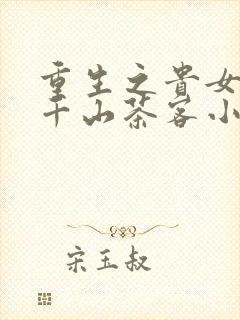 重生之貴女
千山茶客小
宋玉叔